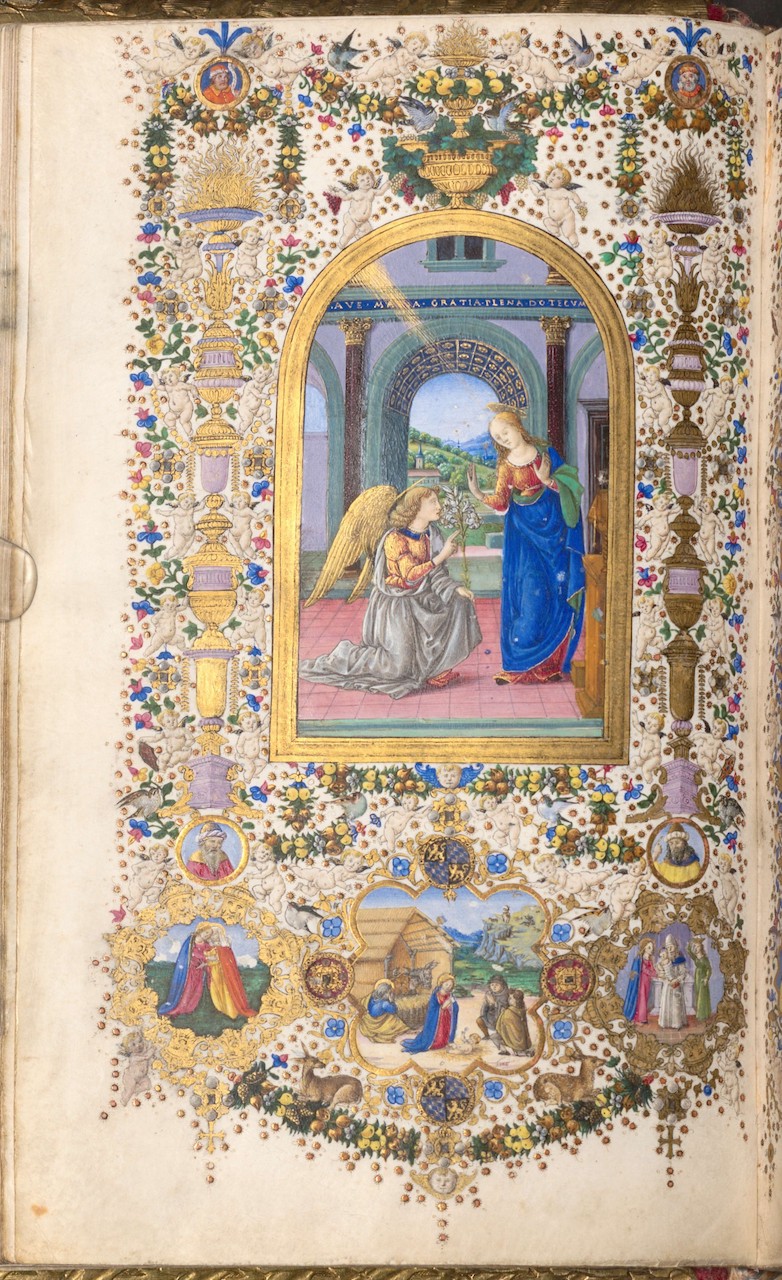 AVE · MARIA · GRATIA · PLENA · DO TECVM